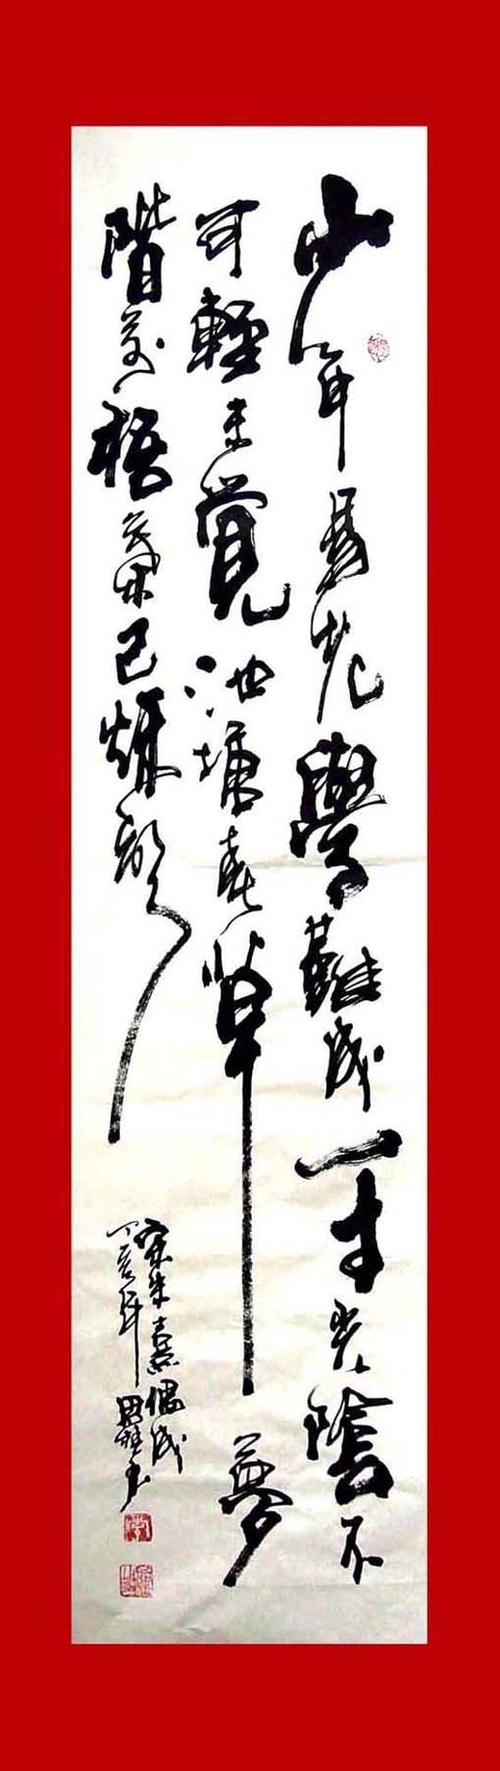 少年易老學難成一寸光陰不
可輕未覺池塘春草夢
階前梧葉已秋聲
宋朱熹偶成
丁亥年